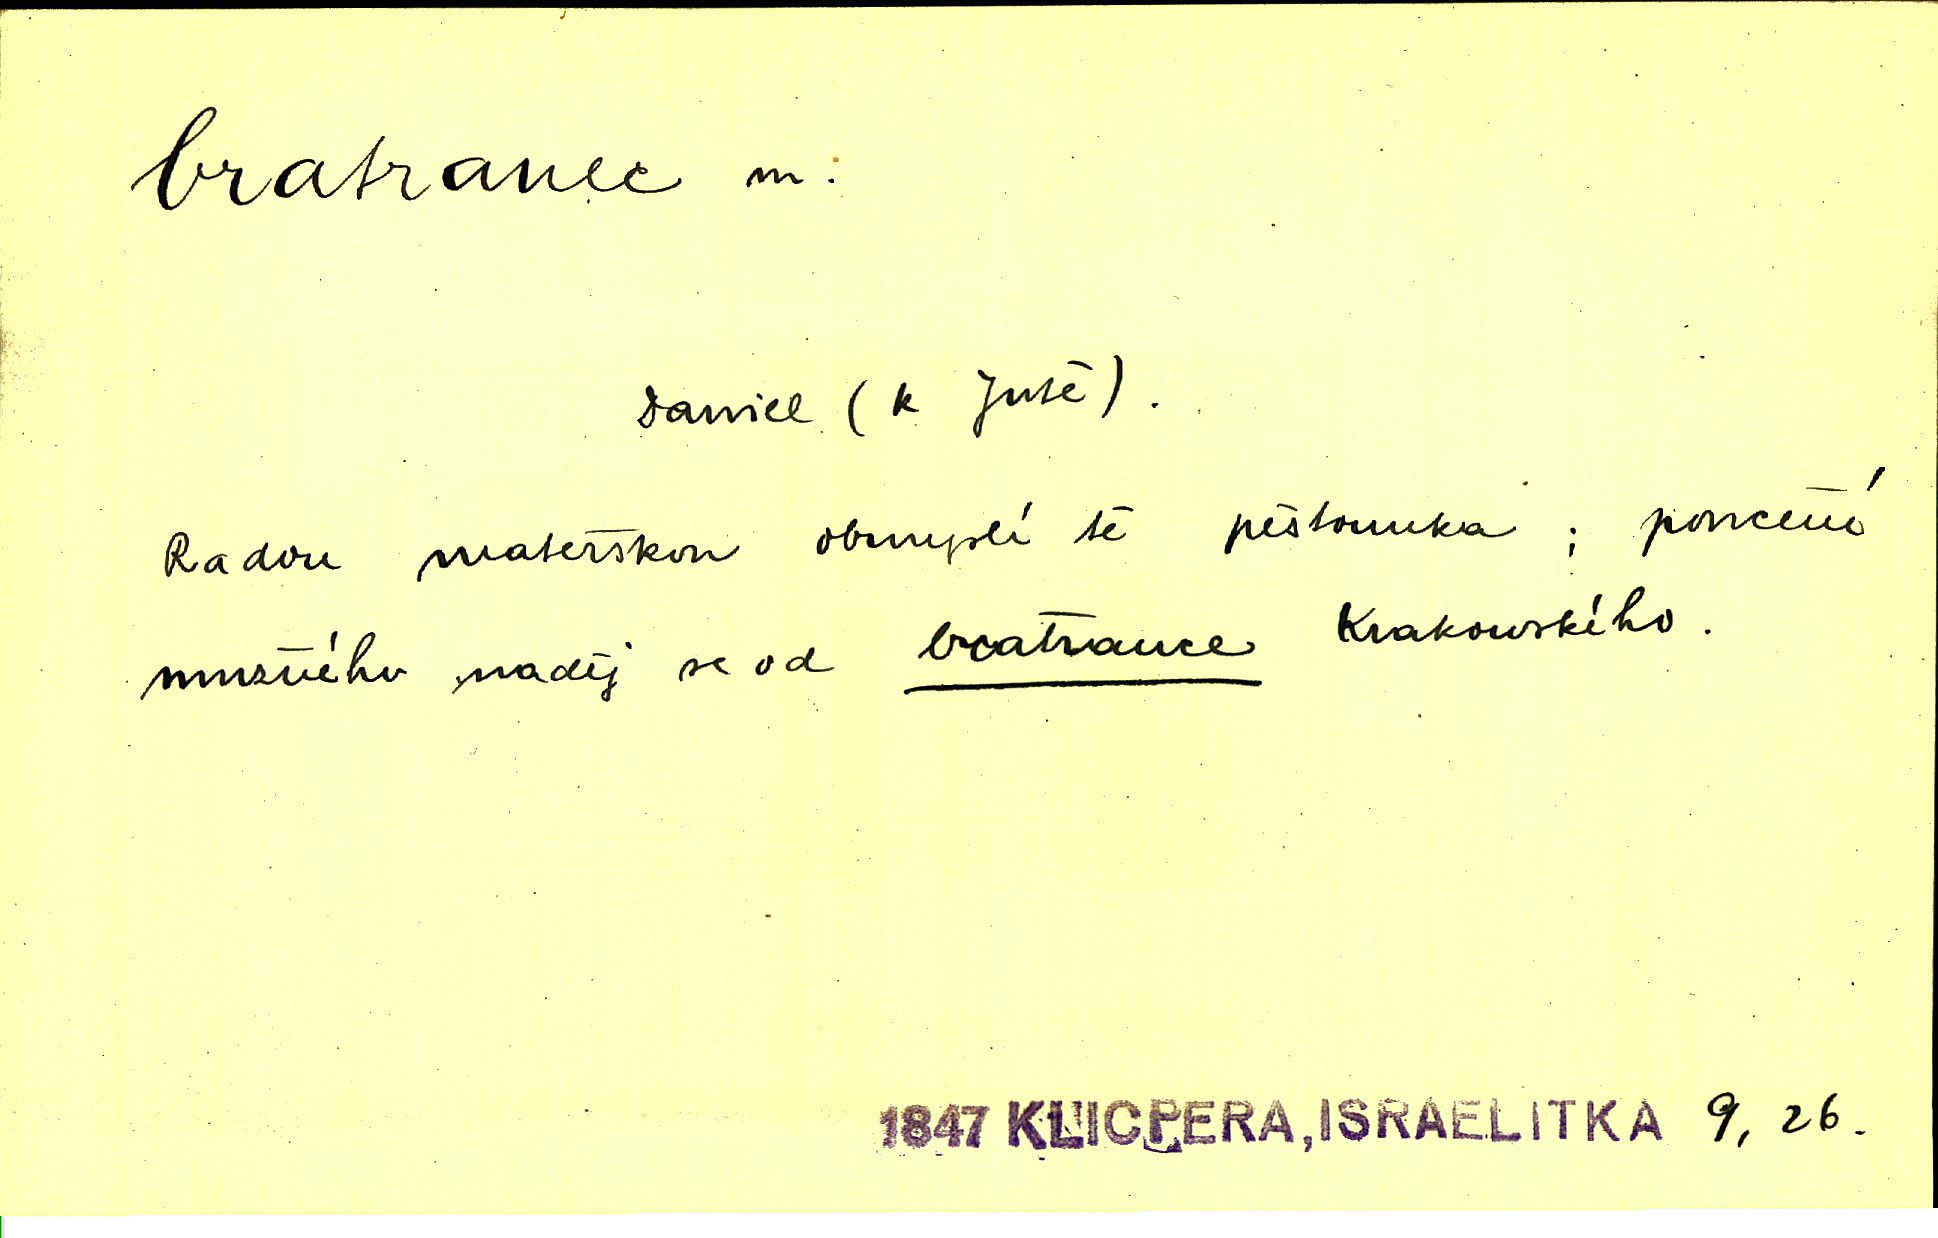 bratranec m.
Daniel (k Jutě).
Radou mateřskou obmyslí tě pěstounka; poučení
mužného naděj se od bratrance Krakowského.
1847 KLICPERA, ISRAELITKA 9, 26.